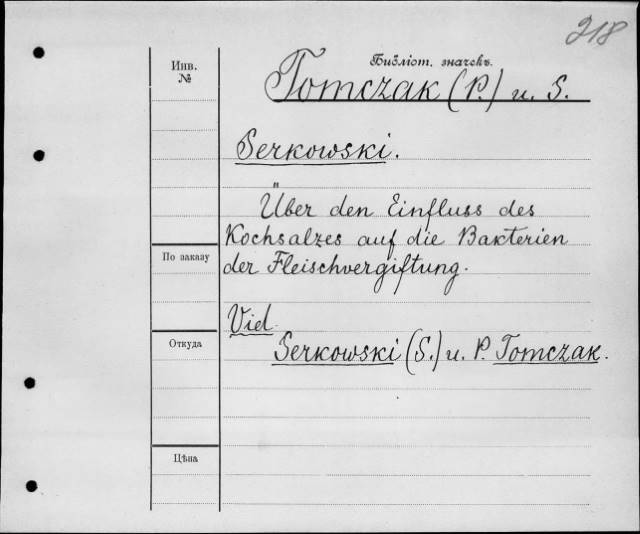 318
Инв.
№
Библіот. значекъ.
Tomczak (P.) u. S.
Serkowski.
Über den Einfluss des
Kochsalzes auf die Bakterien
der Fleischvergiftung.
По заказу
Vid.
Serkowski (S.) u. P. Tomczak.
Откуда
Цѣна